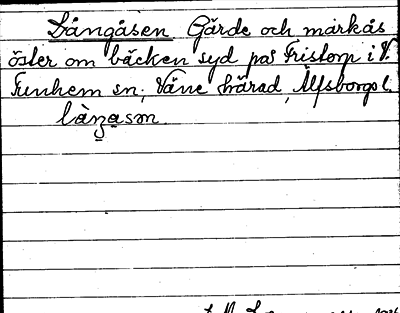 Långåsen Gärde och markås
öster om bäcken syd på Fristorp i V.
Tunhem sn, Väne härad, Älfsborgs l.